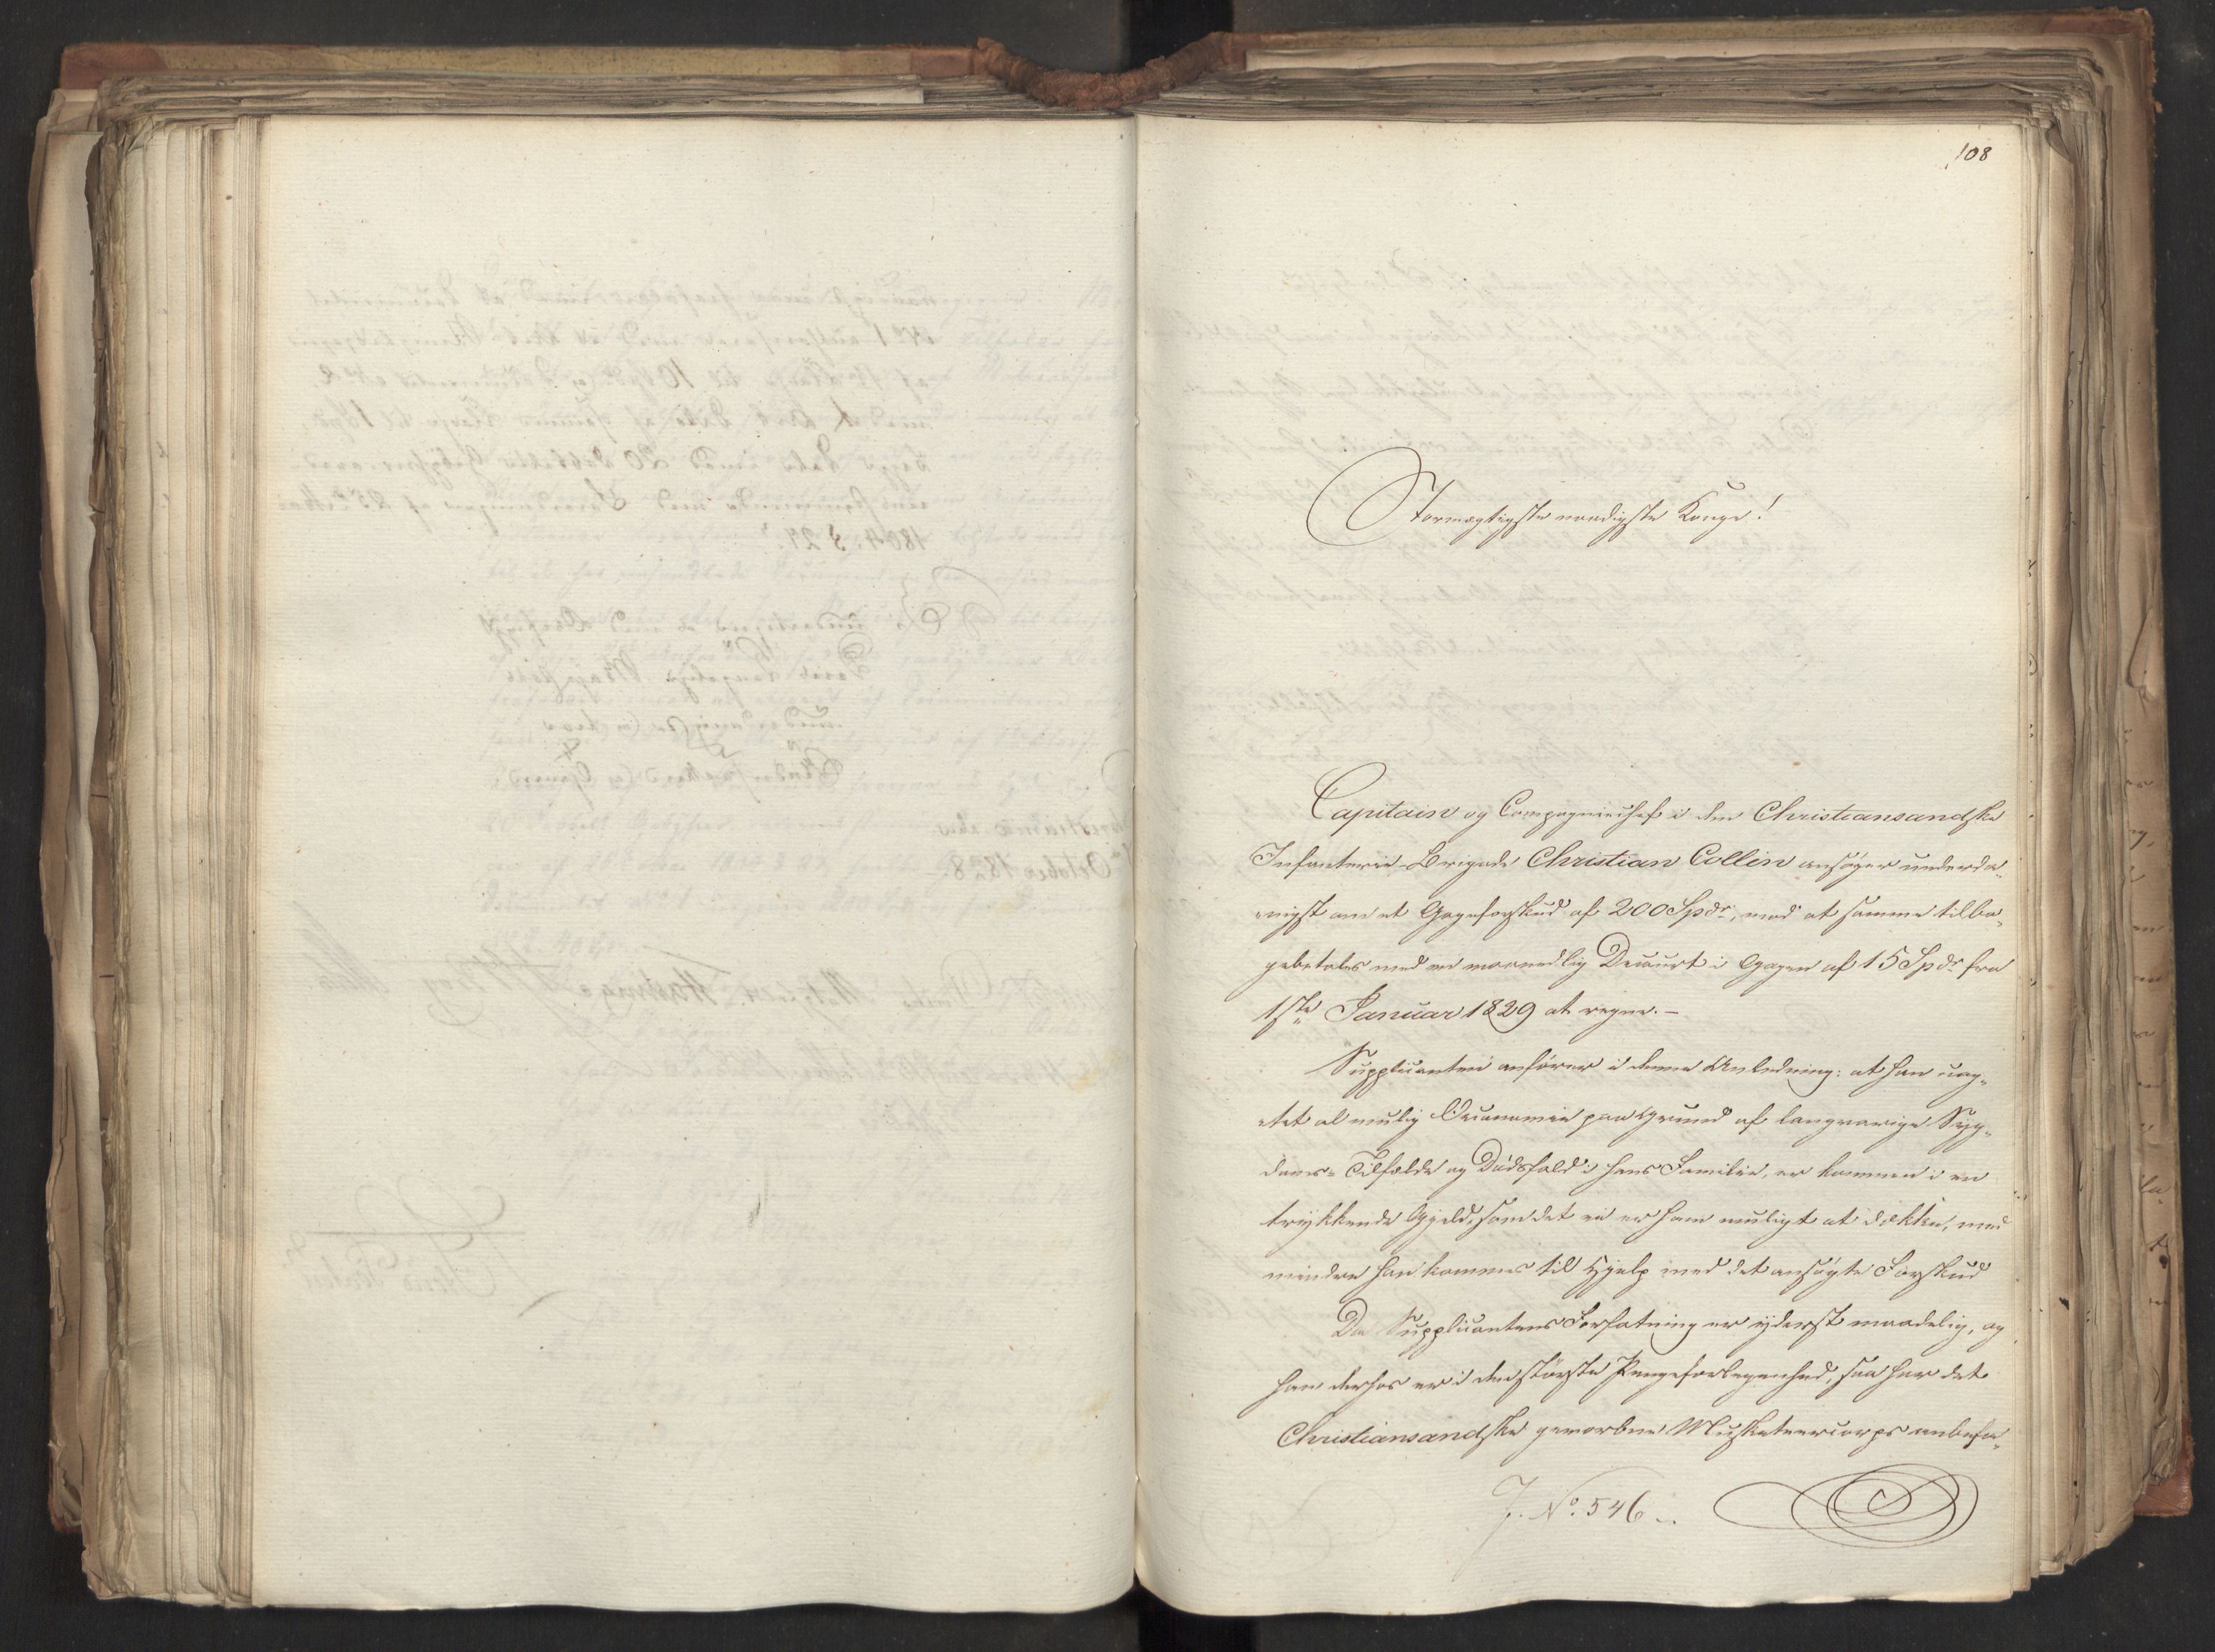 108
Stormægtigste naadigste Konge!
Capitain og Compagniechef i den Christiansandske
Infanterie-Brigade Christian Collin ansøger underda-
nigst om et Gageforskud af 200 Spdr, mod at samme tilba-
gebetales med en maanedlig Decourt i Gagen af 15 Spdr fra
1ste Januar 1829 at regne. –
Supplicanten anfører i denne Anledning: at han uag-
tet al mulig Oeconomie paa Grund af langvarige Syg-
doms-Tilfælde og Dødsfald i hans Familie, er kommen i en
trykkende Gjeld, som det ei er ham muligt at dække, med
mindre han kommes til Hjelp med det ansøgte Forskud
Da Supplicantens Forfatning er yderst maadelig, og
han derhos er i den største Pengeforlegenhed, saa har det
Christiansandske geworbne Musketeercorps anbefa-
J. No. 546.